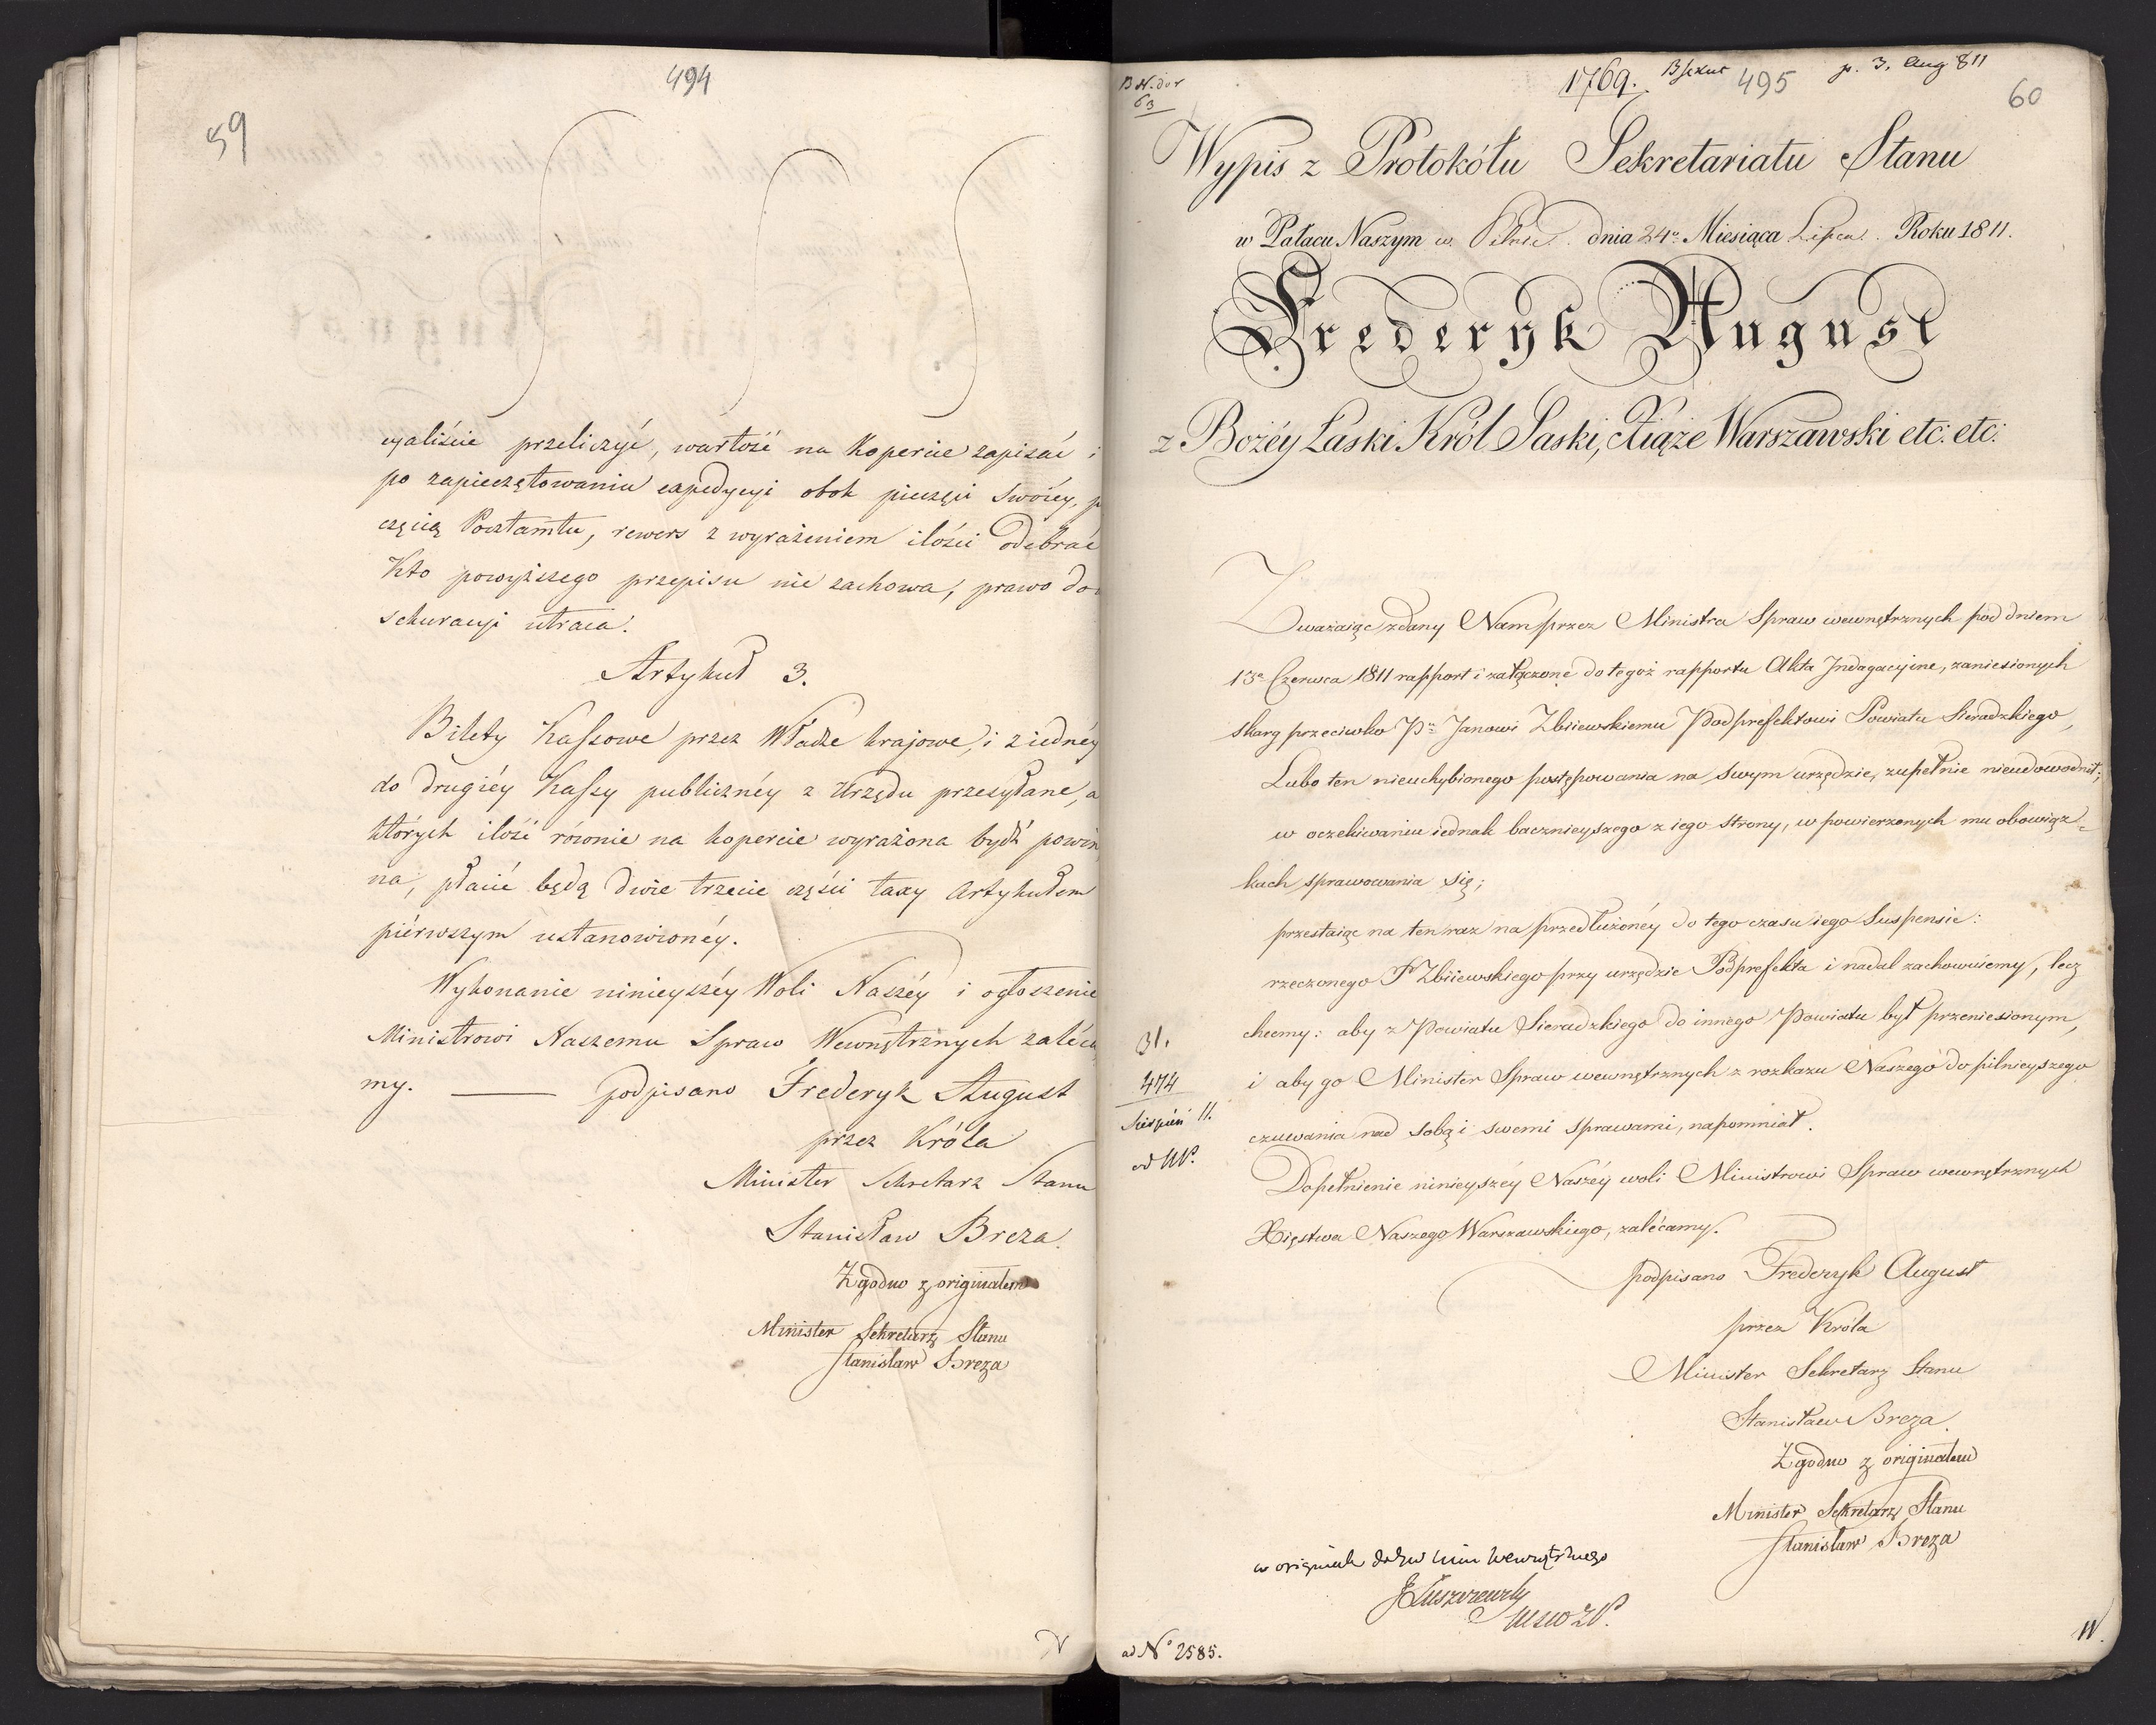 494
59
cyaliście przeliczyć, wartość na Kopercie zapisać i
po zapieczętowaniu expedycyi obok pieczęci swoiey, p
częcią Pocztamtu, rewers z wyrażeniem ilości odebrać
Kto powyższego przepisu nie zachowa, prawo do
sekuracyi utraca.
Artykuł 3.
Bilety Kassowe przez Władze krajowe, i z iednéy
do drugiéy Kassy publicznéy z Urzędu przesyłane, a
których ilość równie na kopercie wyrażona bydź powin
na, płacić będą dwie trzecie części taxy Artykułem
piérwszym ustanowionéy.
Wykonanie ninieyszéy Woli Naszéy i ogłoszenie
Ministrowi Naszemu Spraw Wewnętrznych zaléca
my. — podpisano Frederyk August
przez Króla
Minister Sekretarz Stanu
Stanisław Breza.
Zgodno z originałem
Minister Sekretarz Stanu
Stanisław Breza
63
1769. 495 p. 3. Aug 811
60
Wypis z Protokółu Sekretariatu Stanu
w Pałacu Naszym w Pilnic. dnia 24º Miesiąca Lipca. Roku 1811.
Frederyk August
z Bożéy Łaski Król Saski, Xiąże Warszawski etc: etc:
Zważaiąc zdany Nam przez Ministra Spraw wewnętrznych pod dniem
13º Czerwca 1811 rapport i załączone do tegoż rapportu Akta Indagacyine, zaniesionych
skarg przeciwko Pu Janowi Zbiiewskiemu Podprefektowi Powiatu Sieradzkiego,
Lubo ten nieuchybionego postępowania na swym urzędzie, zupełnie nieudowodnił;
w oczekiwaniu iednak bacznieyszego z iego strony, w powierzonych mu obowiąz-
kach sprawowania się;
przestaiąc na ten raz na przedłużonéy do tego czasu iego Suspensie:
rzeczonego P Zbiiewskiego przy urzędzie Podprefekta i nadal zachowuiemy, lecz
chcemy: aby z Powiatu Sieradzkiego do innego Powiatu był przeniesionym,
i aby go Minister Spraw wewnętrznych z rozkazu Naszego do pilnieyszego
czuwania nad sobą i swemi sprawami, napomniał.
31.
474
Sierpień 11.
Dopełnienie ninieyszéy Naszéy woli Ministrowi Spraw wewnętrznych
Xięstwa Naszego Warszawskiego, zalécamy.
podpisano Frederyk August
przez Króla
Minister Sekretarz Stanu
Stanisław Breza.
Zgodno z originałem
Minister Sekretarz Stanu
Stanisław Breza
w originale
JŁuszczewsky
ad Nº 2585.